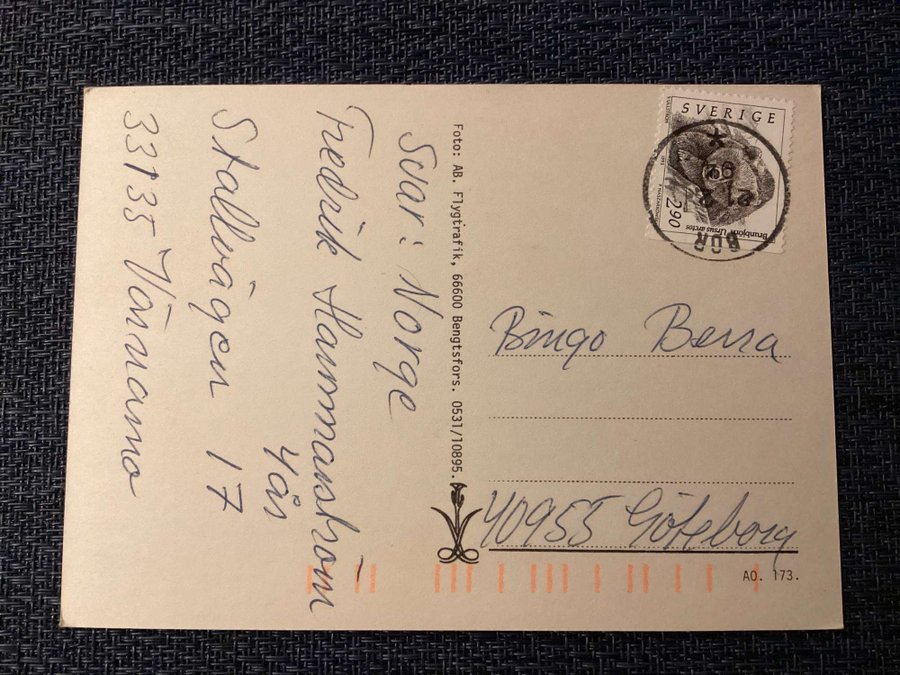 Svar: Norge
Fredrik Hammarström
4 år
Stallvägen 17
33135 Värnamo
Foto: AB. Flygtrafik, 66600 Bengtsfors. 0531/10895.
SVERIGE
290
Brunbjörn Ursus arctos
BOR
Bingo Berra
40955 Göteborg
AO. 173.